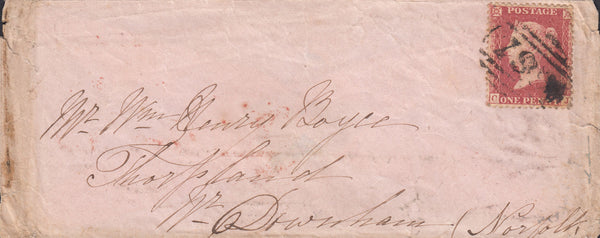 POSTAGE
ONE PENNY
Mr Wm Henry Boyce
Thorpland
Nr Downham (Norfolk